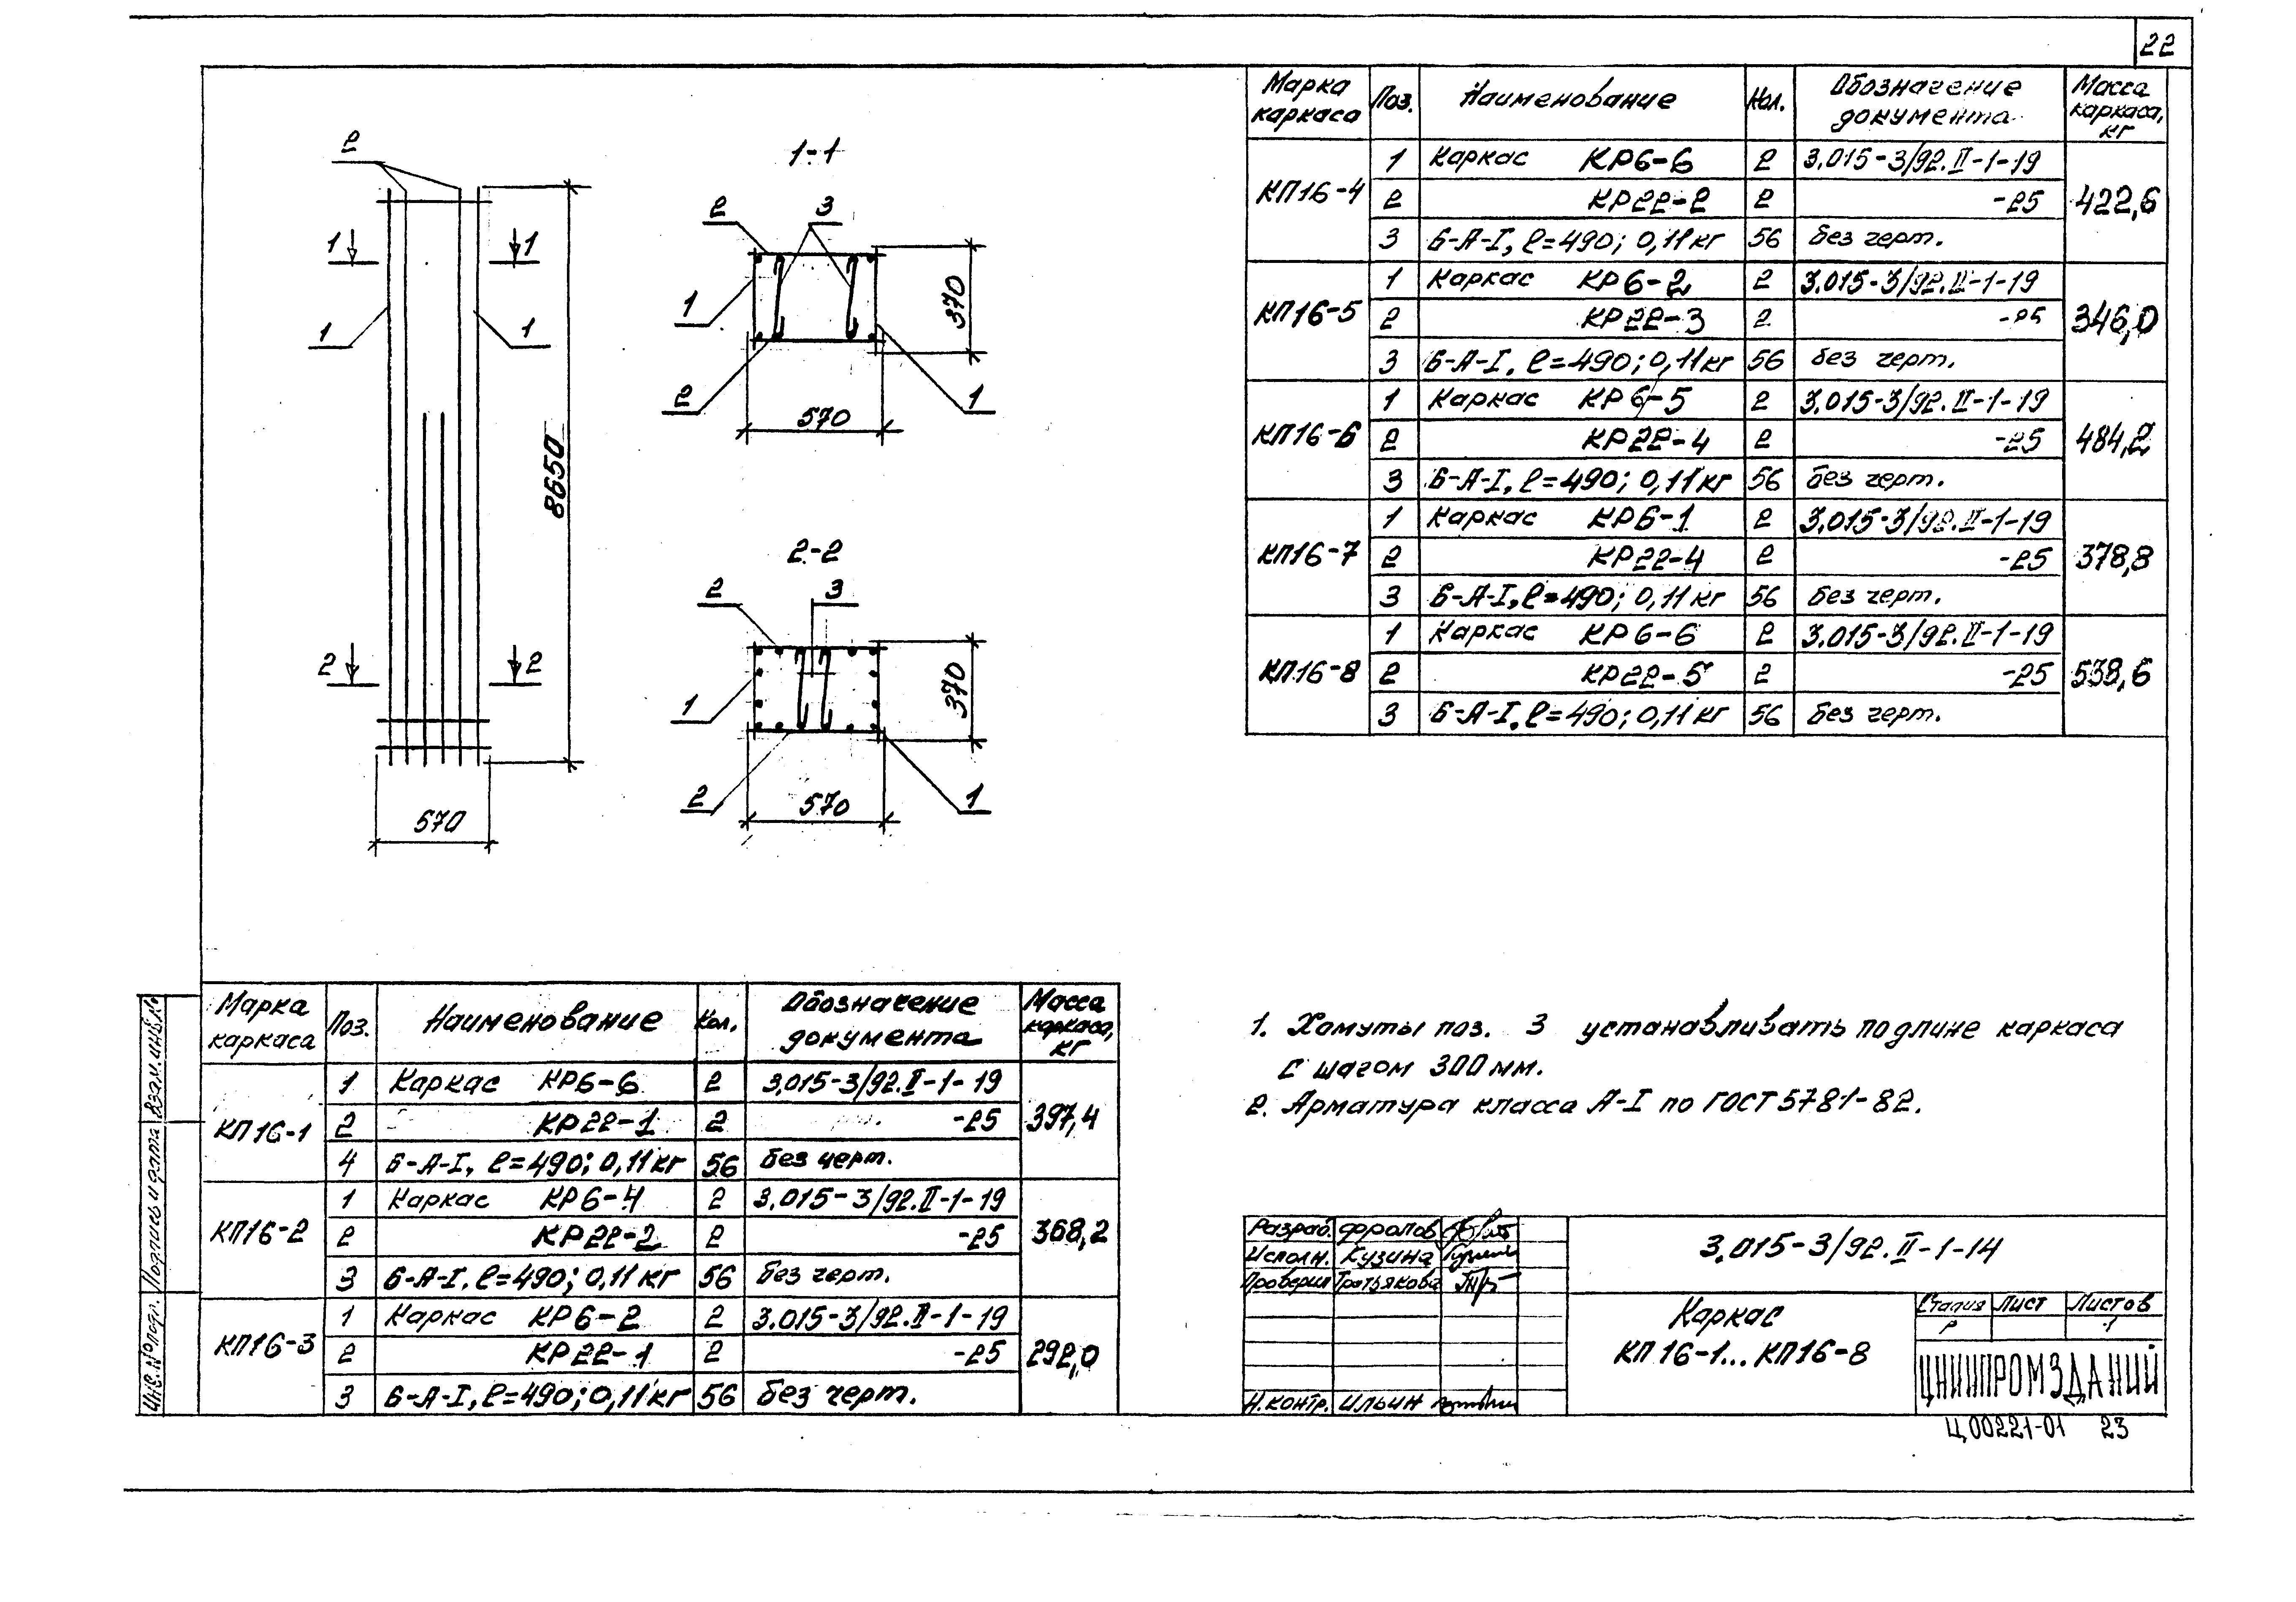 22
2
1 1
1 1
2 2
8650
570
1-1
2 3
1
370
2 1
570
2-2
2 3
1
370
2 1
570
Марка каркаса Поз. Наименование Кол. Обозначение документа Масса каркаса, кг
КП16-4 422,6
1 Каркас КР6-6 2 3.015-3/92.II-1-19
2 КР22-2 2 -25
3 6-А-I, ℓ=490; 0,11кг 56 без черт.
КП16-5 346,0
1 Каркас КР6-2 2 3.015-3/92.II-1-19
2 КР22-3 2 -25
3 6-А-I, ℓ=490; 0,11кг 56 без черт.
КП16-6 484,2
1 Каркас КР6-5 2 3.015-3/92.II-1-19
2 КР22-4 2 -25
3 6-А-I, ℓ=490; 0,11кг 56 без черт.
КП16-7 378,8
1 Каркас КР6-1 2 3.015-3/92.II-1-19
2 КР22-4 2 -25
3 6-А-I, ℓ=490; 0,11кг 56 без черт.
КП16-8 538,6
1 Каркас КР6-6 2 3.015-3/92.II-1-19
2 КР22-5 2 -25
3 6-А-I, ℓ=490; 0,11кг 56 без черт.
Марка каркаса Поз. Наименование Кол. Обозначение документа Масса каркаса, кг
КП16-1 397,4
1 Каркас КР6-6 2 3.015-3/92.II-1-19
2 КР22-1 2 -25
4 6-А-I, ℓ=490; 0,11кг 56 без черт.
КП16-2 368,2
1 Каркас КР6-4 2 3.015-3/92.II-1-19
2 КР22-2 2 -25
3 6-А-I, ℓ=490; 0,11кг 56 без черт.
КП16-3 292,0
1 Каркас КР6-2 2 3.015-3/92.II-1-19
2 КР22-1 2 -25
3 6-А-I, ℓ=490; 0,11кг 56 без черт.
1. Хомуты поз. 3 устанавливать по длине каркаса
с шагом 300мм.
2. Арматура класса А-I по ГОСТ 5781-82.
Разраб. Фролов
Исполн. Кузина
Проверил Третьякова
Н.контр. Ильин
3.015-3/92.II-1-14
Каркас
КП16-1...КП16-8
Стадия Лист Листов
Р 1
ЦНИИПРОМЗДАНИЙ
Ц00221-01 23
Инв.№подл. Подпись и дата Взам.инв.№